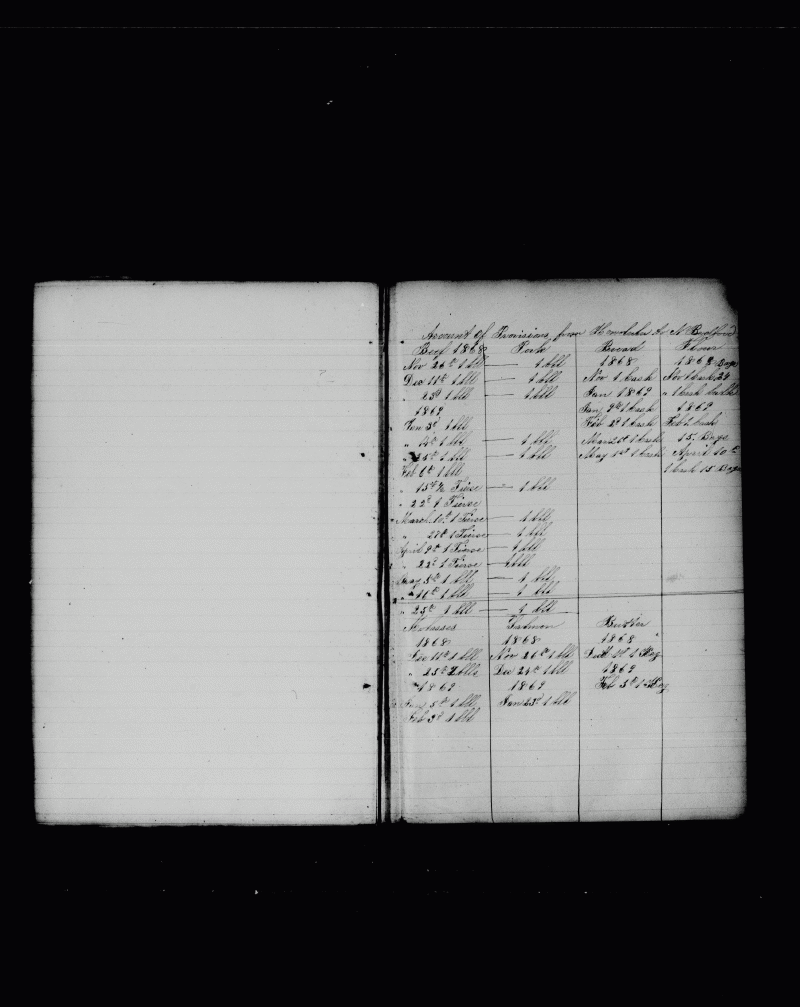 Account of Provisions from Honolulu to N Bedford
Beef 1868 Pork Bread Flour
Nov 26th 1 bbl — 1 bbl 1868 1868 Bags
Dec 11th 1 bbl — 1 bbl Nov 1 cask Nov 1 cask 28
" 23d 1 bbl — 1 bbl Jan 1869 " 1 cask
1869 Jan 9th 1 cask 1869
Jan 5th 1 bbl Feb 2d 1 cask Feb 1 cask
" 14th 1 bbl — 1 bbl Mar 21st 1 cask 15 Bags
" 25th 1 bbl — 1 bbl May 1st 1 cask April 10th
Feb 6th 1 bbl 1 cask 15 Bags
" 15th ½ Tierse — 1 bbl
" 22d 1 Tierse
March 10th 1 Tierse — 1 bbl
" 27th 1 Tierse — 1 bbl
April 9th 1 Tierse — 1 bbl
" 22d 1 Tierse — 1 bbl
May 5th 1 bbl — 1 bbl
" 11th 1 bbl — 1 bbl
" 25th 1 bbl — 1 bbl
Molasses Salmon Butter
1868 1868 1868
Dec 11th 1 bbl Nov 26th 1 bbl 1st 1 Keg
" 25th 2 bbls Dec 24th 1 bbl 1869
1869 1869 Feb 5th 1 Keg
Jan 5th 1 bbl Jan 23d 1 bbl
Feb 3d 1 bbl